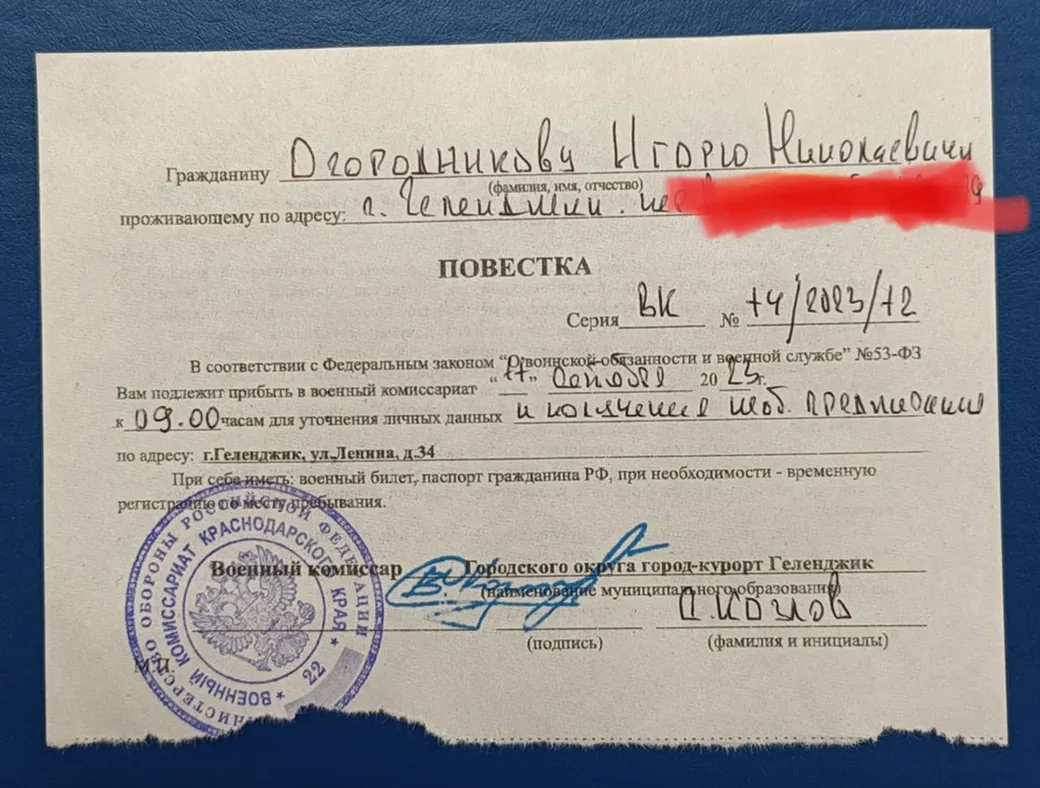 Гражданину Огородникову Игорю Николаевичу
(фамилия, имя, отчество)
проживающему по адресу: г. Геленджик. пер
ПОВЕСТКА
Серия ВК № 74/2023/12
В соответствии с Федеральным законом “О воинской обязанности и военной службе” №53-ФЗ
Вам подлежит прибыть в военный комиссариат “17” октября 2023г.
к 09.00 часам для уточнения личных данных и получения моб. предписания
по адресу: г.Геленджик, ул.Ленина, д.34
При себе иметь: военный билет, паспорт гражданина РФ, при необходимости - временную
регистрацию по месту пребывания.
Военный комиссар Городского округа город-курорт Геленджик
(наименование муниципального образования)
Козлов
(подпись) (фамилия и инициалы)
М.П.
МИНИСТЕРСТВО ОБОРОНЫ РОССИЙСКОЙ ФЕДЕРАЦИИ
ВОЕННЫЙ КОМИССАРИАТ КРАСНОДАРСКОГО КРАЯ * 22 *